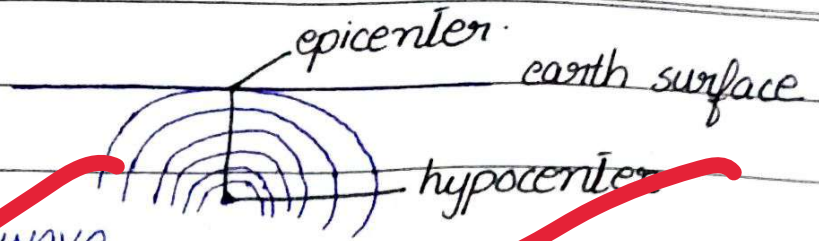 epicenter.
earth surface
hypocenter
wave